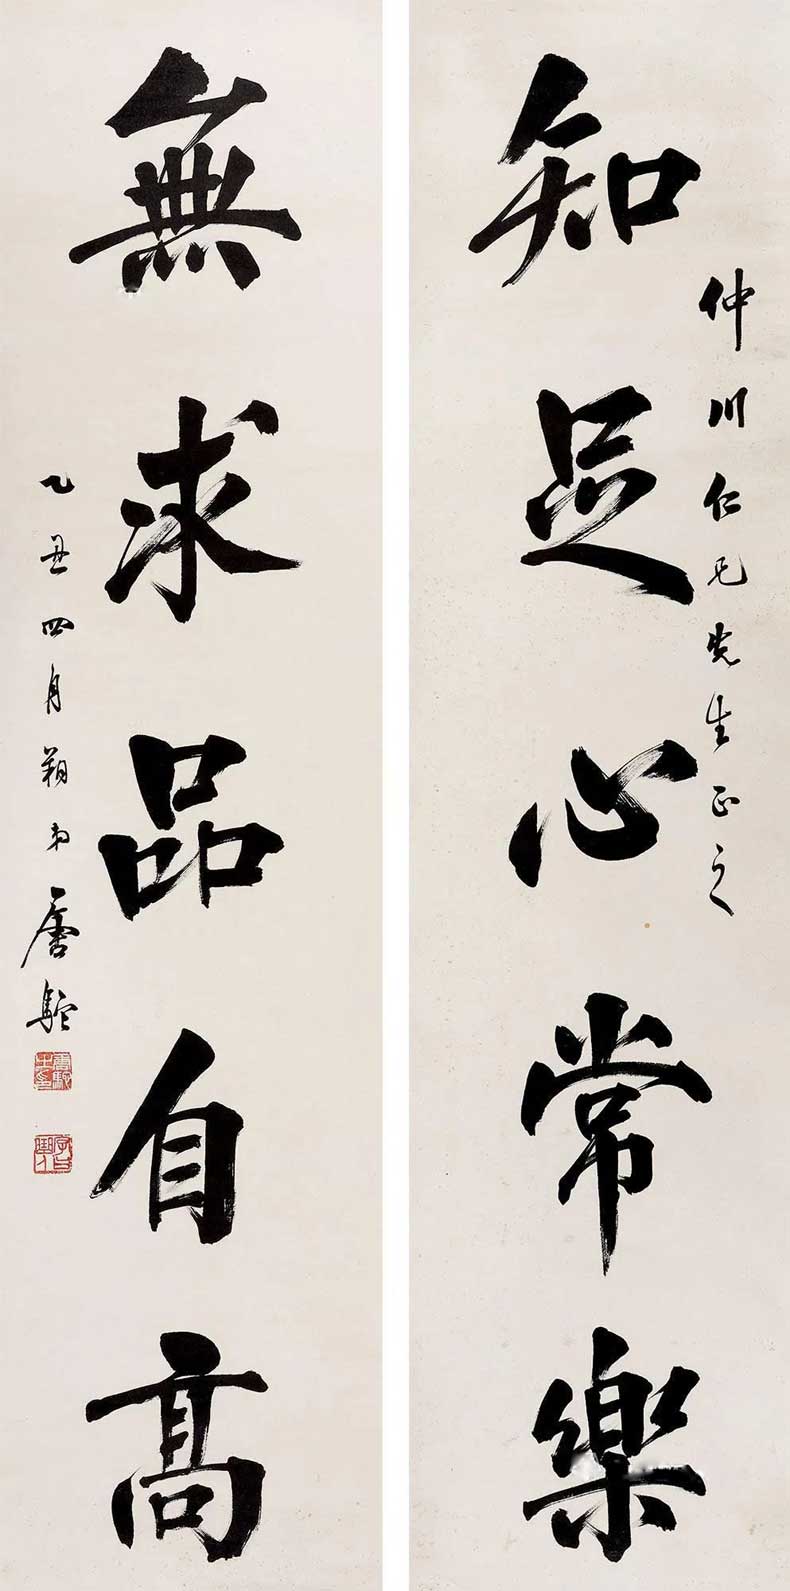 仲川仁兄先生正之
知足心常樂
無求品自高
乙丑四月朔弟唐駝